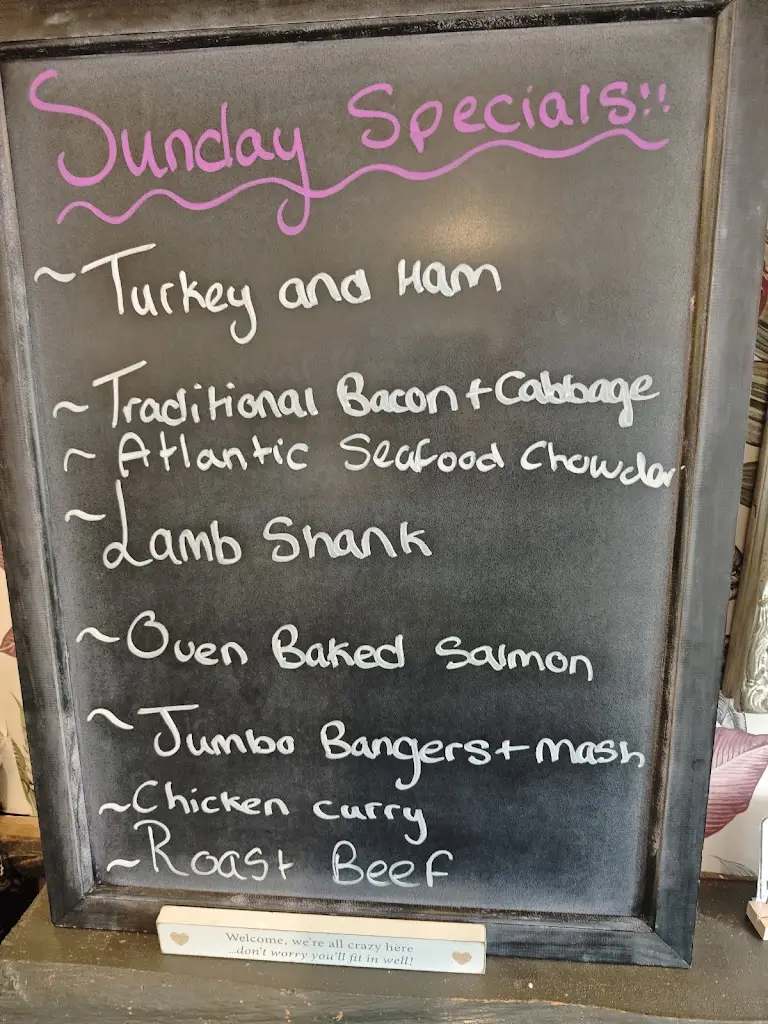 Sunday Specials!!
~ Turkey and Ham
~ Traditional Bacon + Cabbage
~ Atlantic Seafood Chowder
~ Lamb Shank
~ Oven Baked Salmon
~ Jumbo Bangers + mash
~ Chicken curry
~ Roast Beef
Welcome, we're all crazy here
...don't worry you'll fit in well!